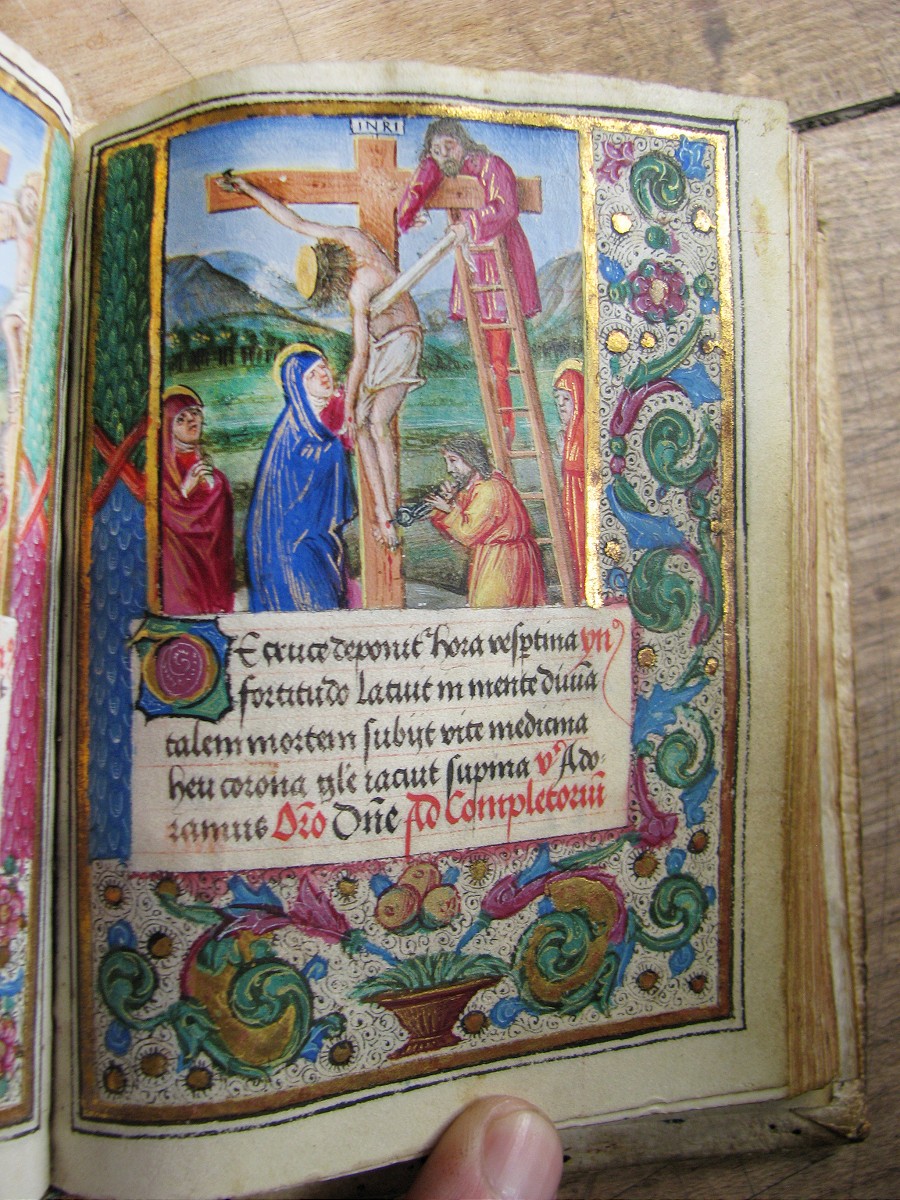 INRI
DE cruce deponit' hora vesp̱tina yn
fortitudo latuit in mente diuīa
talem mortem subijt vite medicina
heu corona gl'e iacuit supina v' Ado-
ramus Or̄o Dn̄e Ad Completoriū